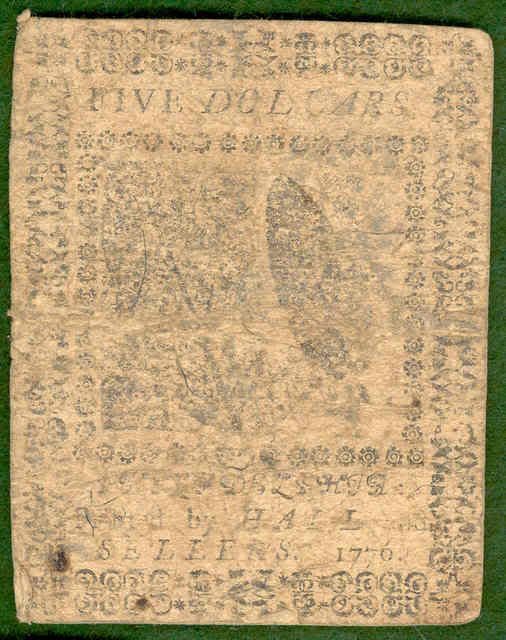 FIVE DOLLARS.
PHILADELPHIA:
Printed by HALL and
SELLERS. 1776.